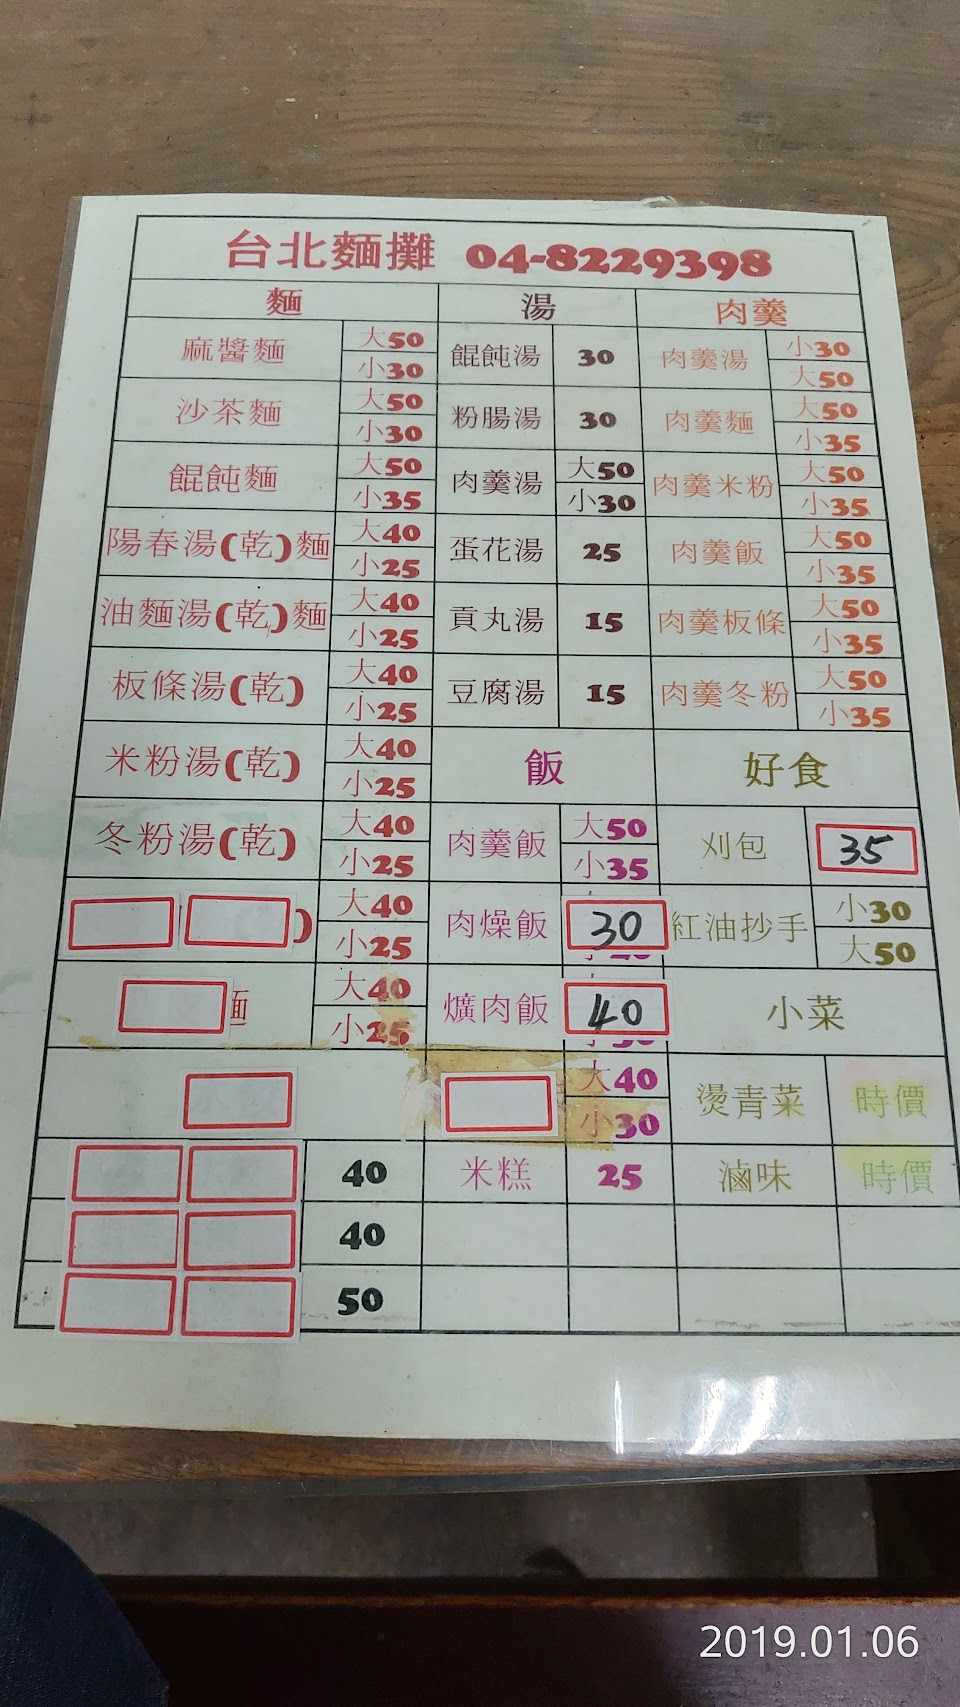 台北麵攤 04-8229398
麵 湯 肉羹
麻醬麵 大50 小30 餛飩湯 30 肉羹湯 小30 大50
沙茶麵 大50 小30 粉腸湯 30 肉羹麵 大50 小35
餛飩麵 大50 小35 肉羹湯 大50 小30 肉羹米粉 大50 小35
陽春湯(乾)麵 大40 小25 蛋花湯 25 肉羹飯 大50 小35
油麵湯(乾)麵 大40 小25 貢丸湯 15 肉羹板條 大50 小35
板條湯(乾) 大40 小25 豆腐湯 15 肉羹冬粉 大50 小35
米粉湯(乾) 大40 小25 飯 好食
冬粉湯(乾) 大40 小25 肉羹飯 大50 小35 刈包 35
) 大40 小25 肉燥飯 30 紅油抄手 小30 大50
麵 大40 小25 爌肉飯 40 小菜
大40 小30 燙青菜 時價
40 米糕 25 滷味 時價
40
50
2019.01.06